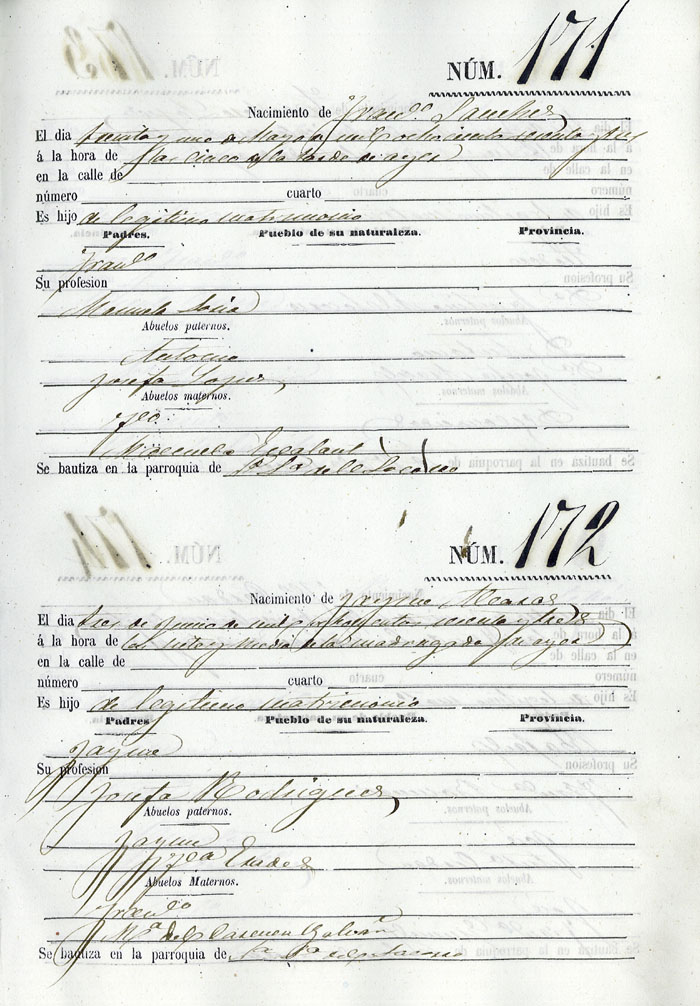 NÚM. 171
Nacimiento de Franco. Sanchez
El dia treinta y uno de Mayo de mil ochocientos sesenta y tres
á la hora de las cinco de la tarde de ayer
en la calle de
número cuarto
Es hijo de legitimo matrimonio
Padres. Pueblo de su naturaleza. Provincia.
Franco
Su profesion
Manuela Soria
Abuelos paternos.
Antonio
Josefa Lopez
Abuelos maternos.
Fco.
Manuela
Se bautiza en la parroquia de
NÚM. 172
Nacimiento de Jayme
El dia tres de Junio de mil ochocientos sesenta y tres
á la hora de las siete y media de la madrugada de ayer
en la calle de
número cuarto
Es hijo de legitimo matrimonio
Padres Pueblo de su naturaleza. Provincia.
Jayme
Su profesion
Josefa Rodriguez
Abuelos paternos.
Jayme
Abuelos Maternos.
Franco
Ma. del Carmen Galvañ
Se bautiza en la parroquia de